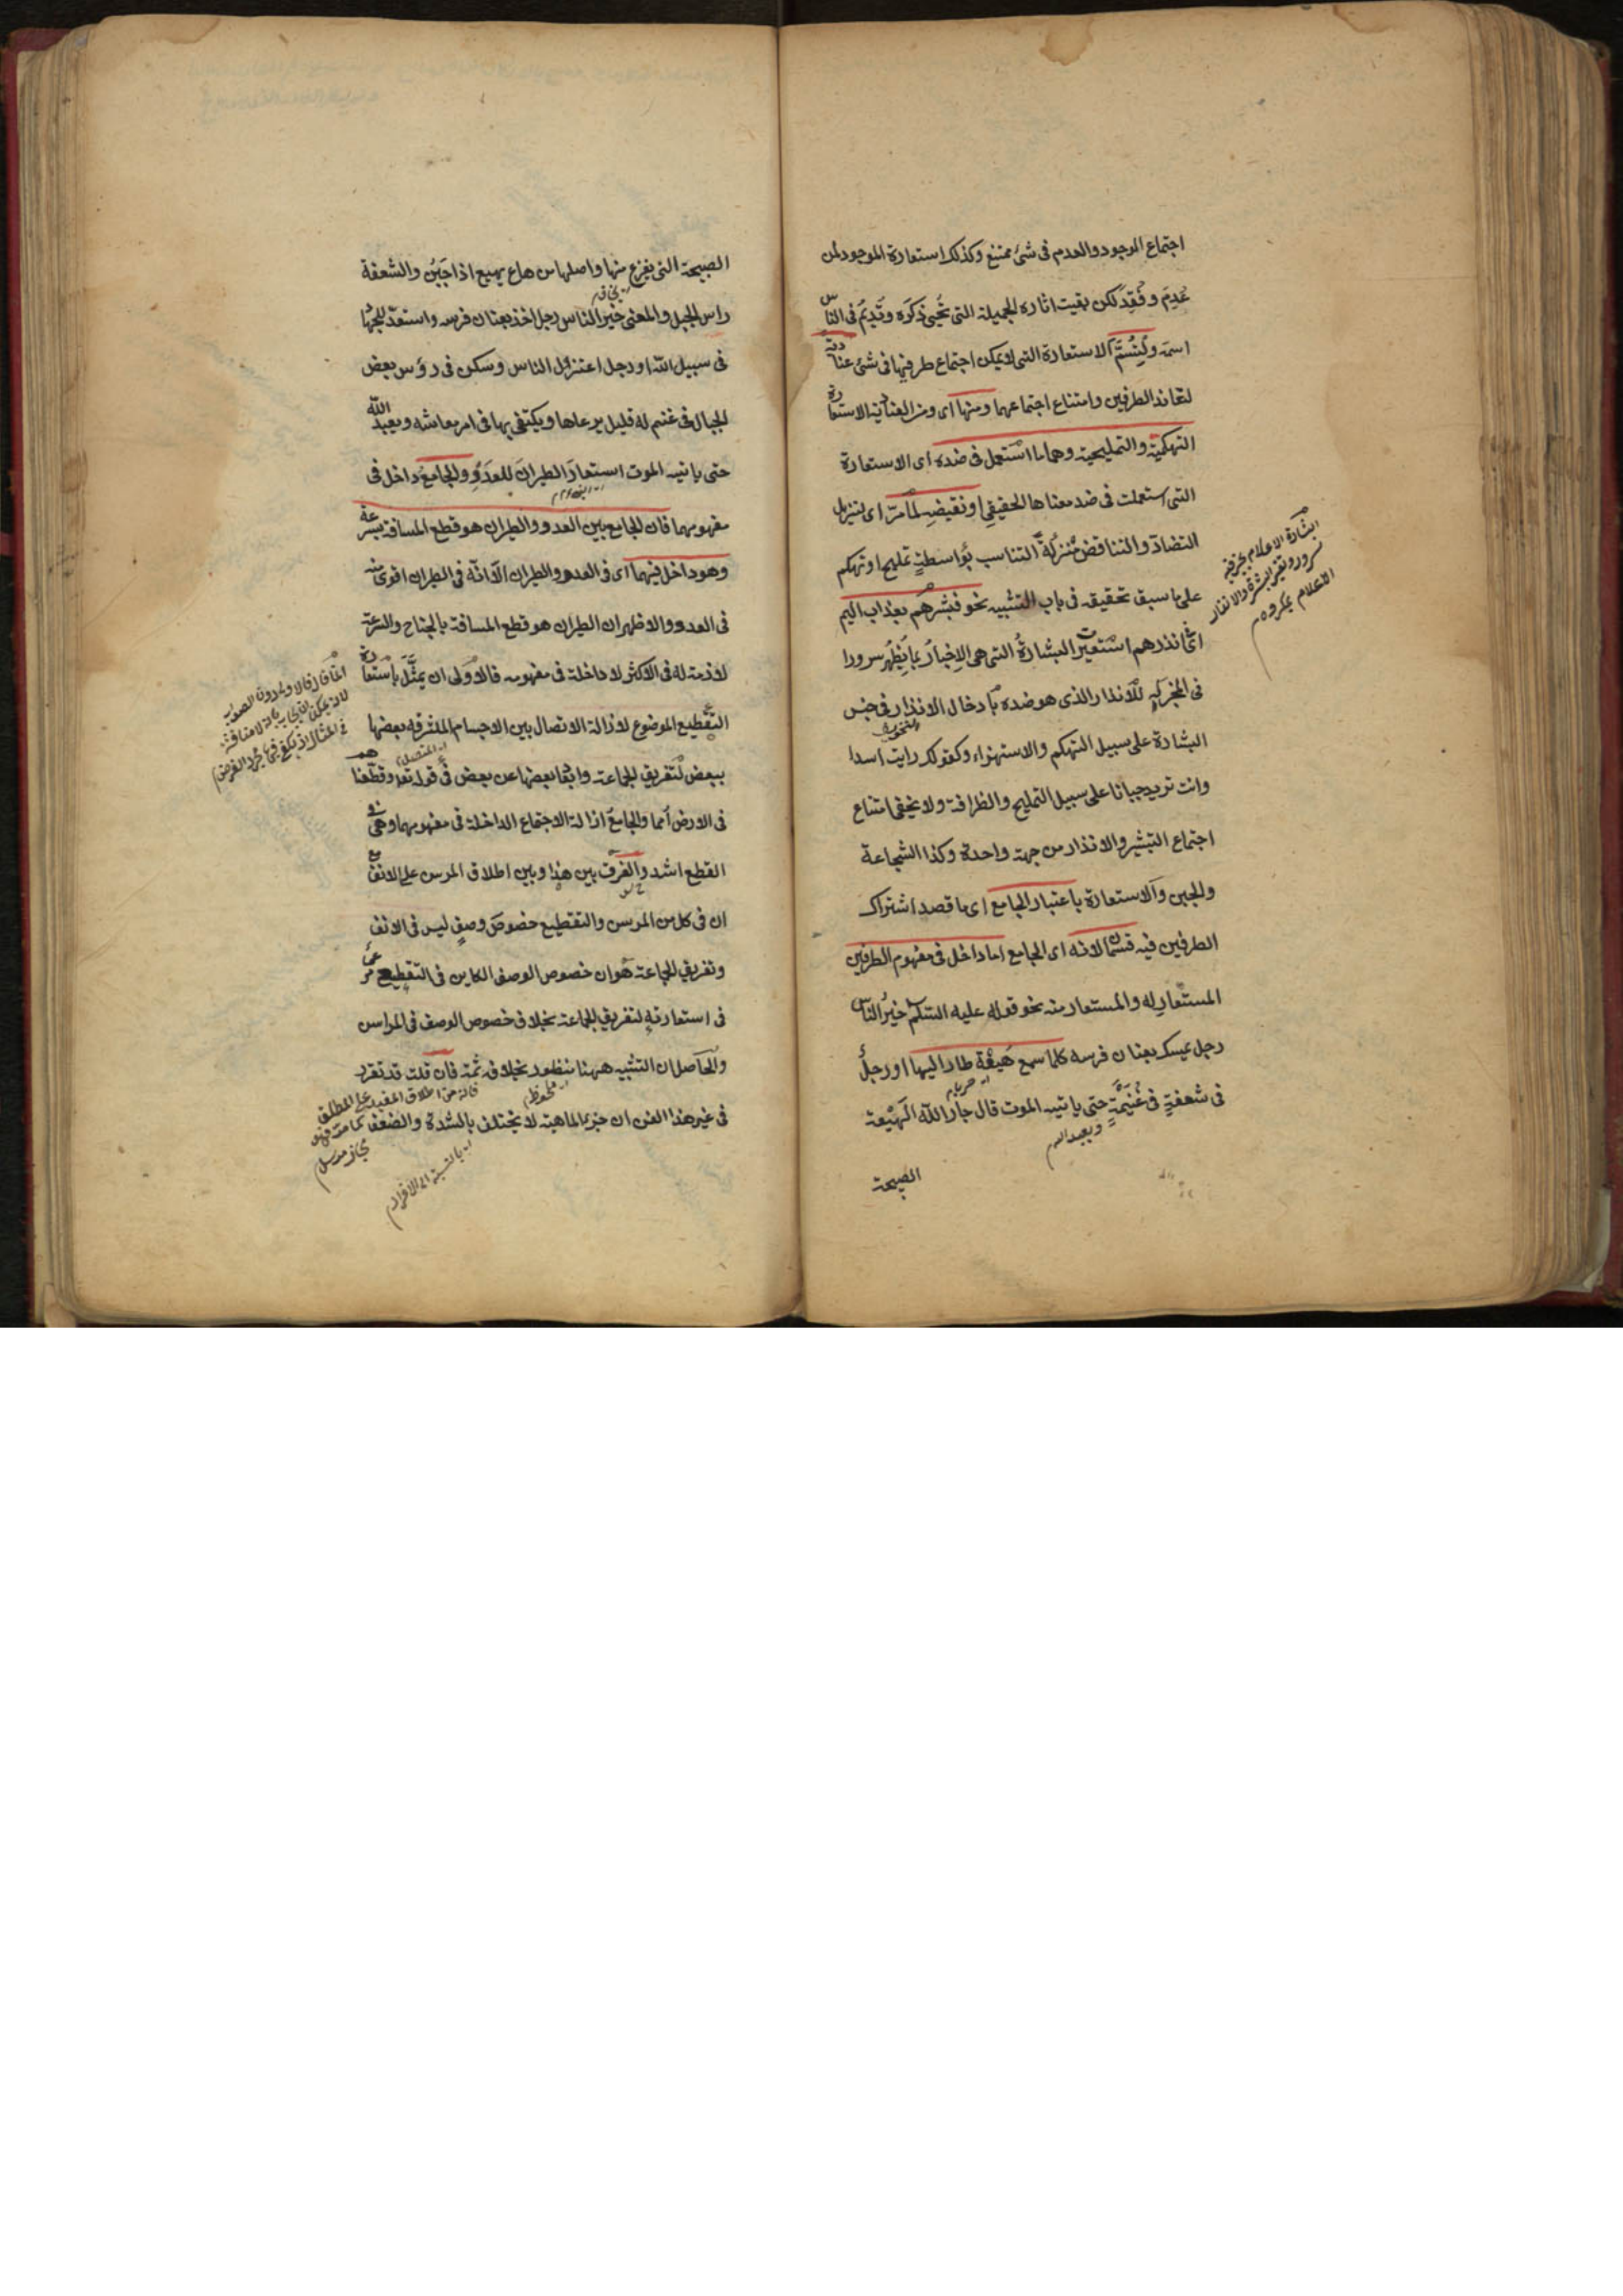 اجتماع الوجود والعدم فى شئ ممتنع وكذلك استعارة الموجود لمن
عُدِمَ وفُقِدَ لكن بقيت اثاره الجميلة التى تُحيى ذكرَه وتُديمُ فى الناس
اسمَه ولتُسَمَّ الاستعارة التى لا يمكن اجتماع طرفيها فى شئ عنادية
لتعاند الطرفين وامتناع اجتماعهما ومنها اى ومن العنادية الاستعارة
التهكمية والتمليحية وهما ما استعمل فى ضده اى الاستعارة
التى استعملت فى ضد معناها الحقيقى او نقيضه لما مرّ اى لتنزيل
التضادّ والتناقض منزلة التناسب بواسطة تمليح او تهكم
على ما سبق تحقيقه فى باب التشبيه نحو فبشرهم بعذاب اليم
اى انذرهم استعيرت البشارةُ التى هى الإخبارُ بما يُظهر سرورا
فى المخبر به للانذار الذى هو ضده بادخال الانذار فى جنس
البشارة على سبيل التهكم والاستهزاء وكقولك رايت اسدا
وانت تريد جبانا على سبيل التمليح والظرافة ولا يخفى امتناع
اجتماع التبشير والانذار من جهة واحدة وكذا الشجاعة
والجبن والاستعارة باعتبار الجامع اى ما قصد اشتراك
الطرفين فيه قسمان لانه اى الجامع اما داخل فى مفهوم الطرفين
المستعار له والمستعار منه نحو قوله عليه السلام خيرُ الناس
رجل يمسك بعنان فرسه كلما سمع هَيعَة طار اليها او رجلٌ
فى شعفةٍ فى غُنَيمَةٍ حتى ياتيه الموت قال جار اللّه الهَيعة
ويعبد الله
الصيحة
البشارة الاعلام بخبر فيه
سرور وتغير البشرة والانذار
الاعلام بمكروه م
الصيحة التى يفزع منها واصلها من هاع يهيع اذا جَبُن والشعفة
راس الجبل والمعنى خير الناس رجل اخذ بعنان فرسه واستعد للجهاد
فى سبيل اللّه او رجل اعتزل الناس وسكن فى رؤس بعض
الجبال فى غنم له قليل يرعاها ويكتفى بها فى امر معاشه ويعبد اللّه
حتى ياتيه الموت استعارَ الطيرانَ للعَدْوِ والجامعُ داخل فى
مفهومهما فان الجامع بين العدو والطيران هو قطع المسافة بسرعة
وهو داخل فيهما اى فى العدو والطيران الّا انّه فى الطيران اقوى منه
فى العدو والاظهر ان الطيران هو قطع المسافة بالجناح والسرعة
لازمة له فى الاكثر لا داخلة فى مفهومه فالاولى ان يمثّل باستعارة
التقطيع الموضوع لازالة الاتصال بين الاجسام الملتزقة بعضها
ببعض لتفريق الجماعة وابعاد بعضها عن بعض فى قوله تعو وقطّعناهم
فى الارض اُمما والجامع ازالة الاجتماع الداخلة فى مفهومهما وهى فى
القطع اشد والفرق بين هذا وبين اطلاق المرسن على الانف مع
ان فى كل من المرسن والتقطيع خصوصَ وصفٍ ليس فى الانف
وتفريق الجماعة هو ان خصوص الوصف الكاين فى التقطيع مرعىٌ
فى استعارته لتفريق الجماعة بخلاف خصوص الوصف فى المرسن
والحاصل ان التشبيه ههنا منظور بخلافه ثمة فان قلت قد تقرر
فى غير هذا الفن ان جزء الماهية لا يختلف بالشدة والضعف
اى ملحوظ م
اى بالنسبة الى الافراد م
مجاز مرسل م